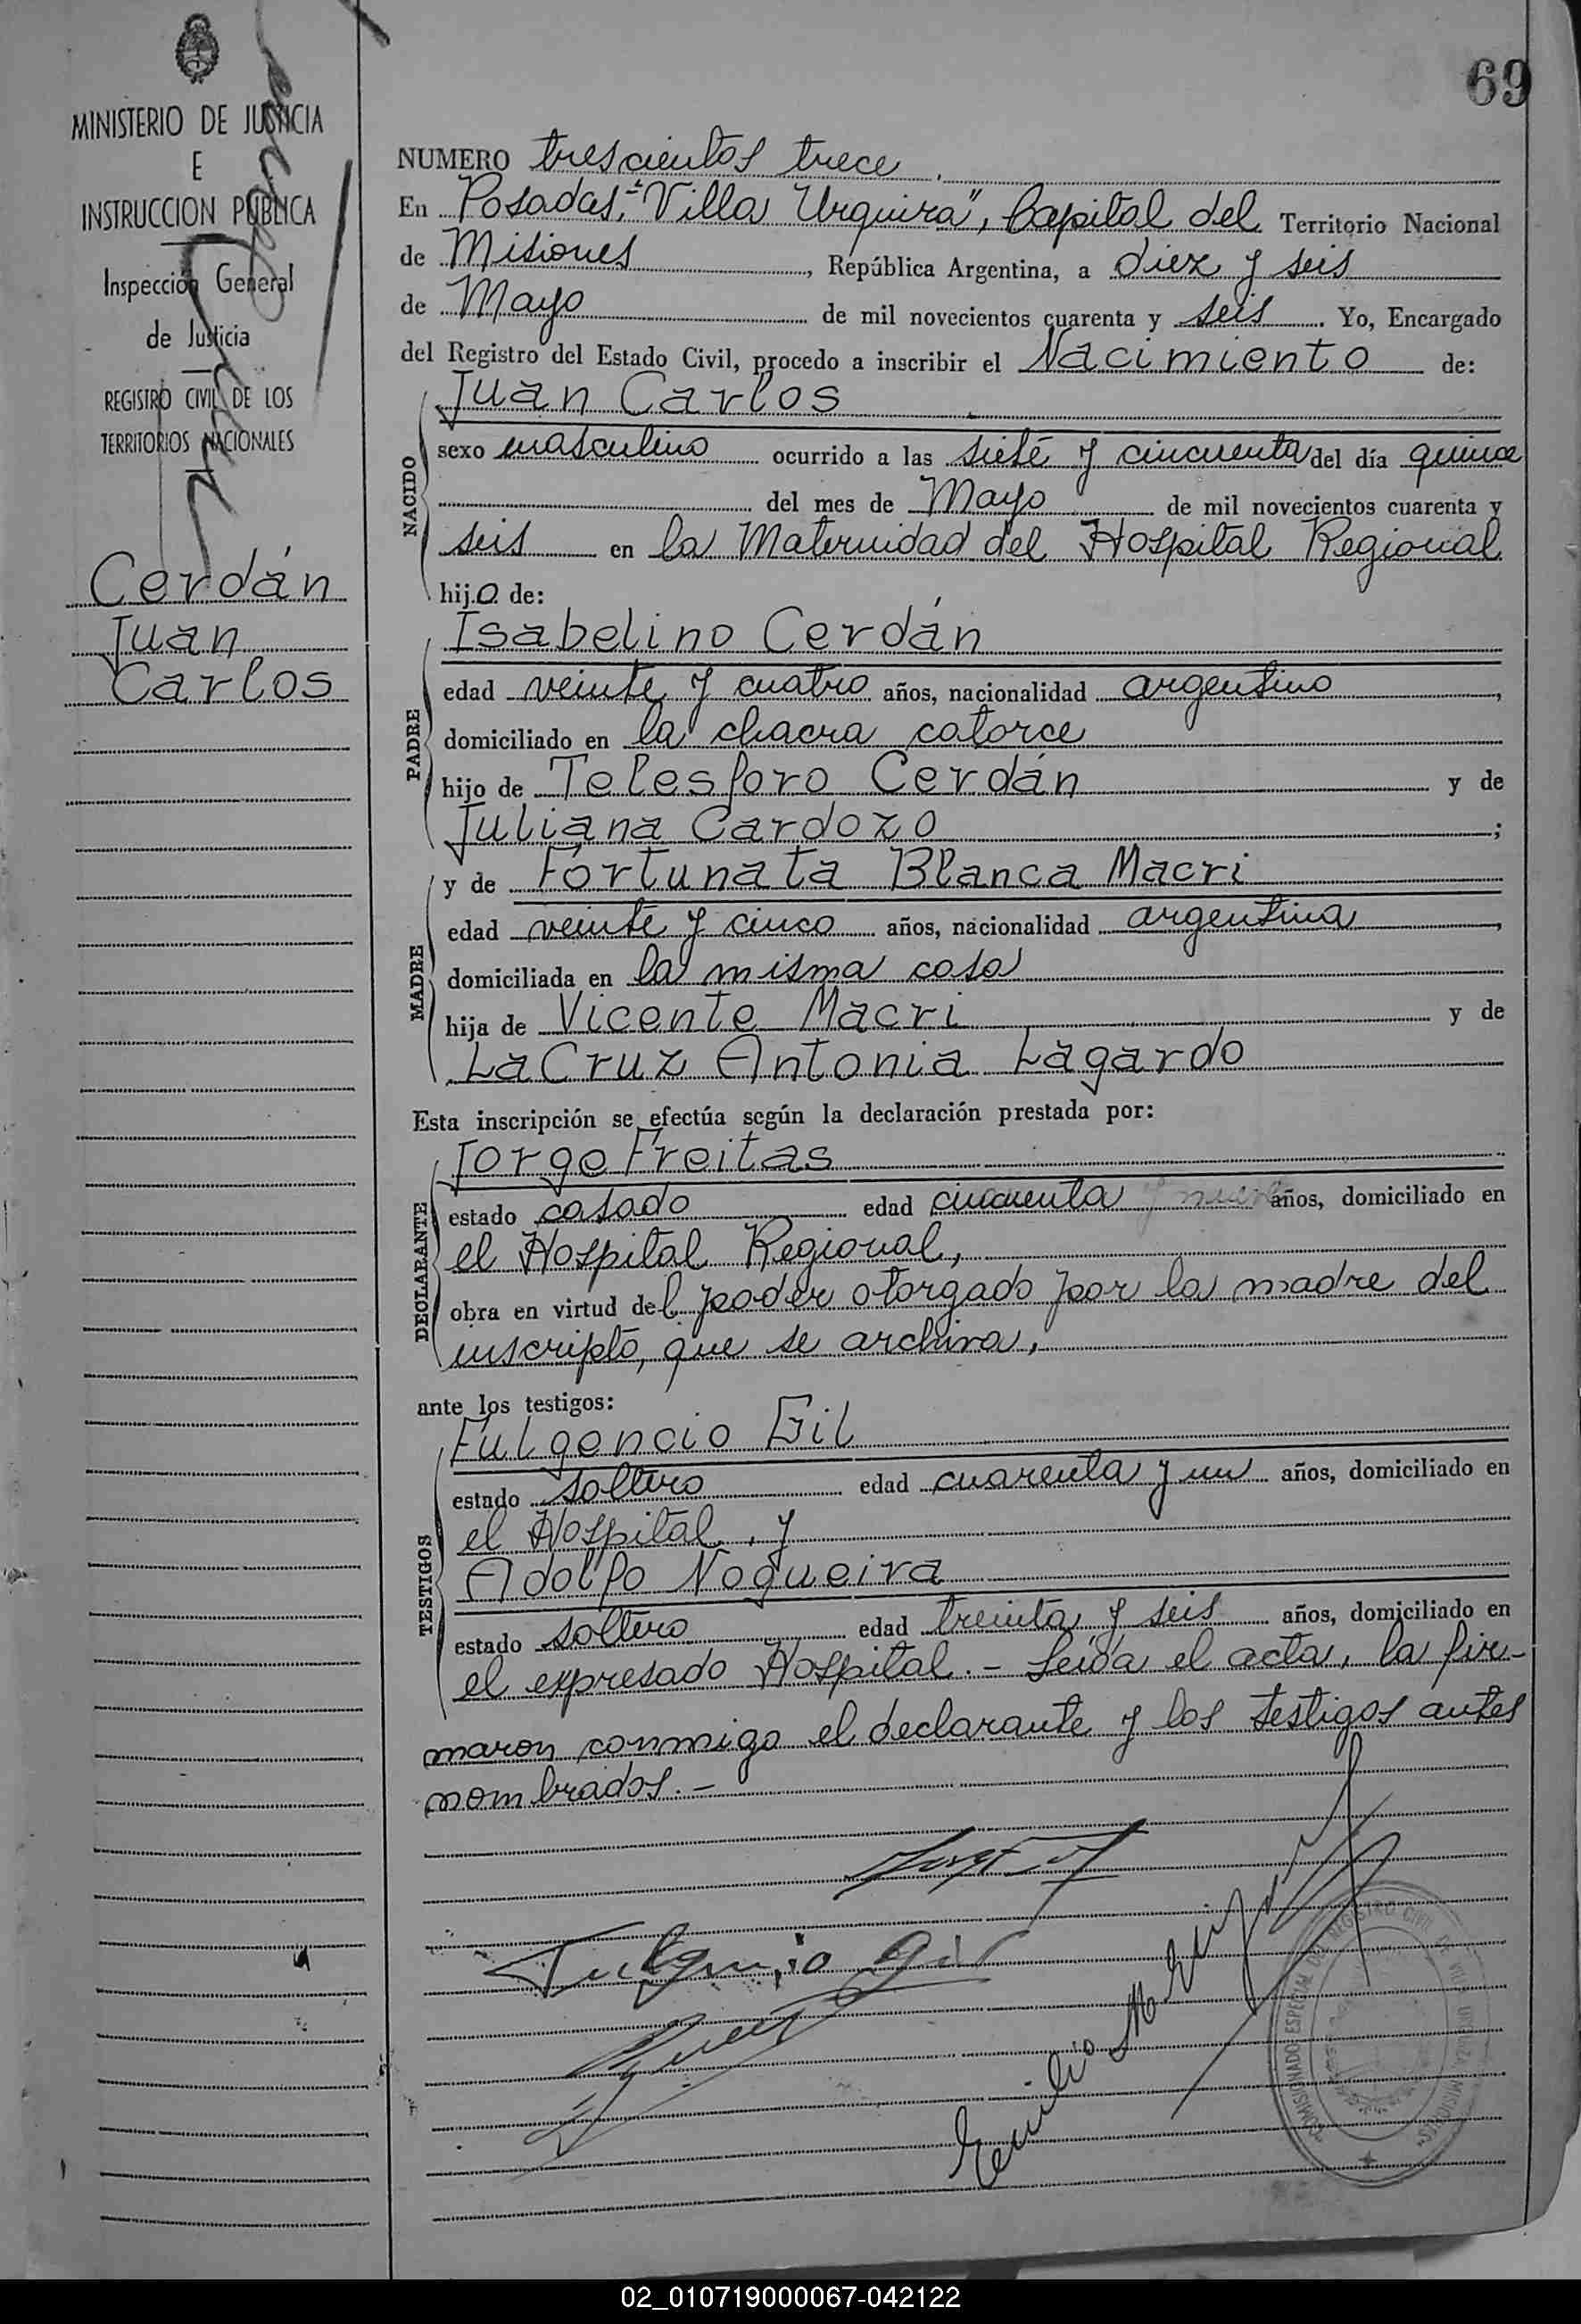 69
MINISTERIO DE JUSTICIA
E
INSTRUCCION PUBLICA
Inspección General
de Justicia
REGISTRO CIVIL DE LOS
TERRITORIOS NACIONALES
Cerdán
Juan
Carlos
NUMERO trescientos trece.
En Posadas, "Villa Urquiza", Capital del Territorio Nacional
de Misiones, República Argentina, a diez y seis
de Mayo de mil novecientos cuarenta y seis. Yo, Encargado
del Registro del Estado Civil, procedo a inscribir el Nacimiento de:
NACIDO
Juan Carlos
sexo masculino ocurrido a las siete y cincuenta del día quince
del mes de Mayo de mil novecientos cuarenta y
seis en la Maternidad del Hospital Regional
hijo de:
PADRE
Isabelino Cerdán
edad veinte y cuatro años, nacionalidad argentino,
domiciliado en la chacra catorce
hijo de Telesforo Cerdán y de
Juliana Cardozo;
MADRE
y de Fortunata Blanca Macri
edad veinte y cinco años, nacionalidad argentina,
domiciliada en la misma casa
hija de Vicente Macri y de
La Cruz Antonia Lagardo
Esta inscripción se efectúa según la declaración prestada por:
DECLARANTE
Jorge Freitas
estado casado edad cincuenta y nueve años, domiciliado en
el Hospital Regional,
obra en virtud del poder otorgado por la madre del
inscripto, que se archiva.
ante los testigos:
TESTIGOS
Fulgencio Gil
estado soltero edad cuarenta y un años, domiciliado en
el Hospital, y
Adolfo Nogueira
estado soltero edad treinta y seis años, domiciliado en
el expresado Hospital.- Leída el acta, la fir-
maron conmigo el declarante y los testigos antes
nombrados.-
Fulgencio Gil
Emilio M.
COMISIONADO ESPECIAL DEL REGISTRO CIVIL DE VILLA URQUIZA MISIONES
02_010719000067-042122